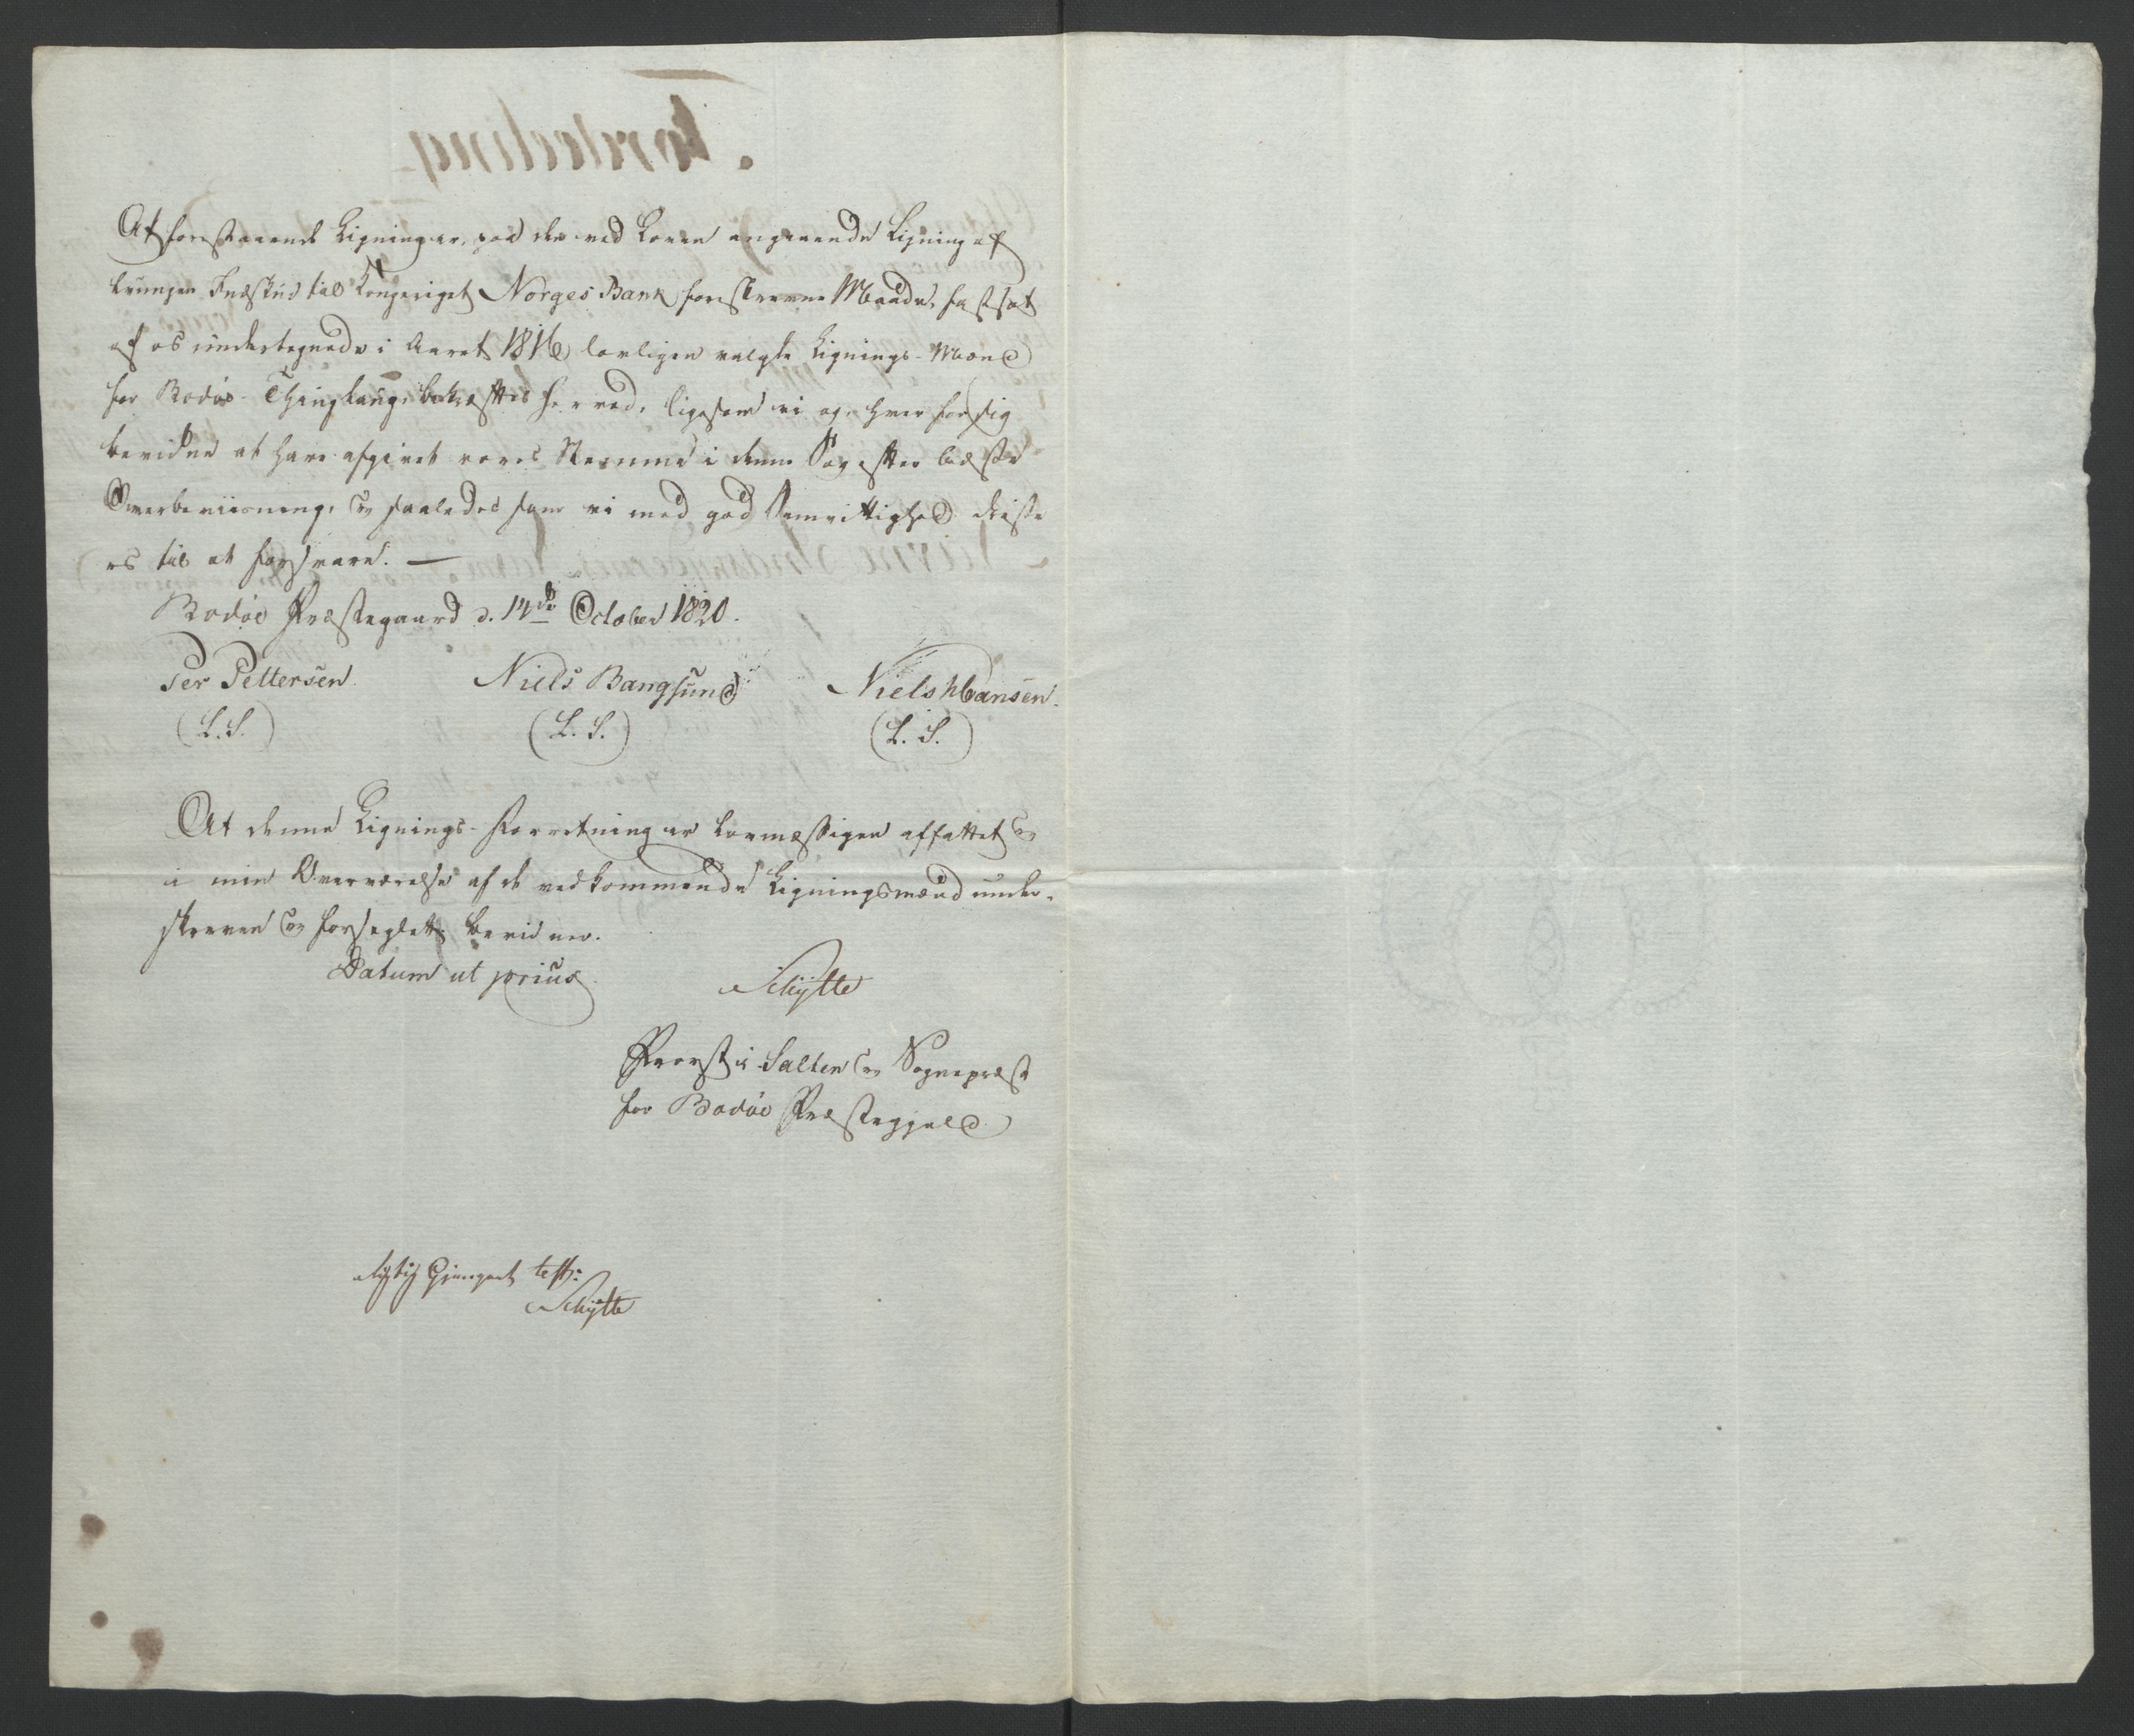 At forestaaende Ligning er, paa den ved Loven angaaende Ligning af
tvungen Indskud til Kongeriget Norges Bank foreskrevne Maade, fastsat
af os undertegnede i Aaret 1816 lovligen valgte Lignings-Mænd
for Bodøe-Thinglaug, bekræftes herved, ligesom vi og, hver for sig
bevidne at have afgivet vores Stemme i denne Sag efter bedste
Overbeviisning, og saaledes som vi med god Samvittighed trøste
os til at forsvare. —
Bodøe Præstegaard d. 14de October 1820.
Per Pettersen Niels Bangsund Niels Hansen.
(L.S.) (L.S.) (L.S.)
At denne Lignings-Forretning er lovmæssigen affattet og
i min Overværelse af de vedkommende Ligningsmænd under-
skreven og forseglet, bevidner.
Datum ut prius.
Schytte
Provst i Salten og Sognepræst
for Bodøe Præstegjeld
rigtig Gjenpart test:
Schytte